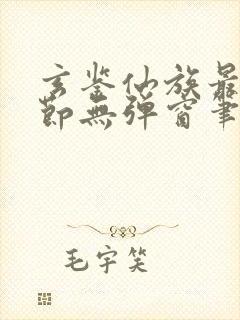 玄鉴仙族最
节无弹窗笔
毛宇笑